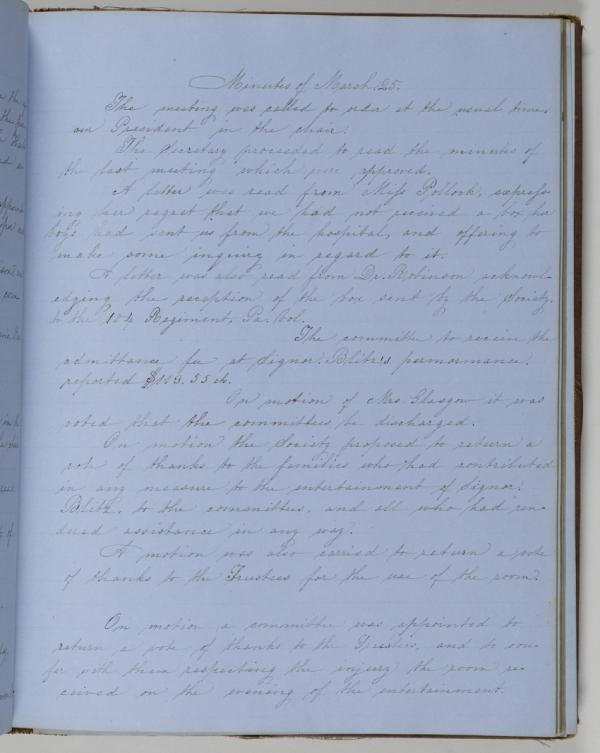 Minutes of March 25.
The meeting was called to order at the usual time,
our President in the chair.
The Secretary proceeded to read the minutes of
the last meeting which were approved.
A letter was read from Miss Pollock, express-
ing her regret that we had not received a box her
boys had sent us from the hospital, and offering to
make some inquiry in regard to it.
A letter was also read from Dr. Robinson acknowl-
edging the reception of the box sent by the Society,
to the 104 Regiment, Pa. Vol.
The committee to receive the
admittance fee at Signor. Blitz's permormance.
reported $113.55 cts.
On motion of Mrs. Glasgow it was
voted that the committees be discharged.
On motion the Society proposed to return a
vote of thanks to the families who had contributed
in any measure to the entertainment of Signor.
Blitz, to the committees, and all who had ren-
dered assistance in any way.
A motion was also carried to return a vote
of thanks to the Trustees for the use of the room.
On motion a committee was appointed to
return a vote of thanks to the Trustees, and to con-
fer with them respecting the injury the room re-
ceived on the evening of the entertainment.